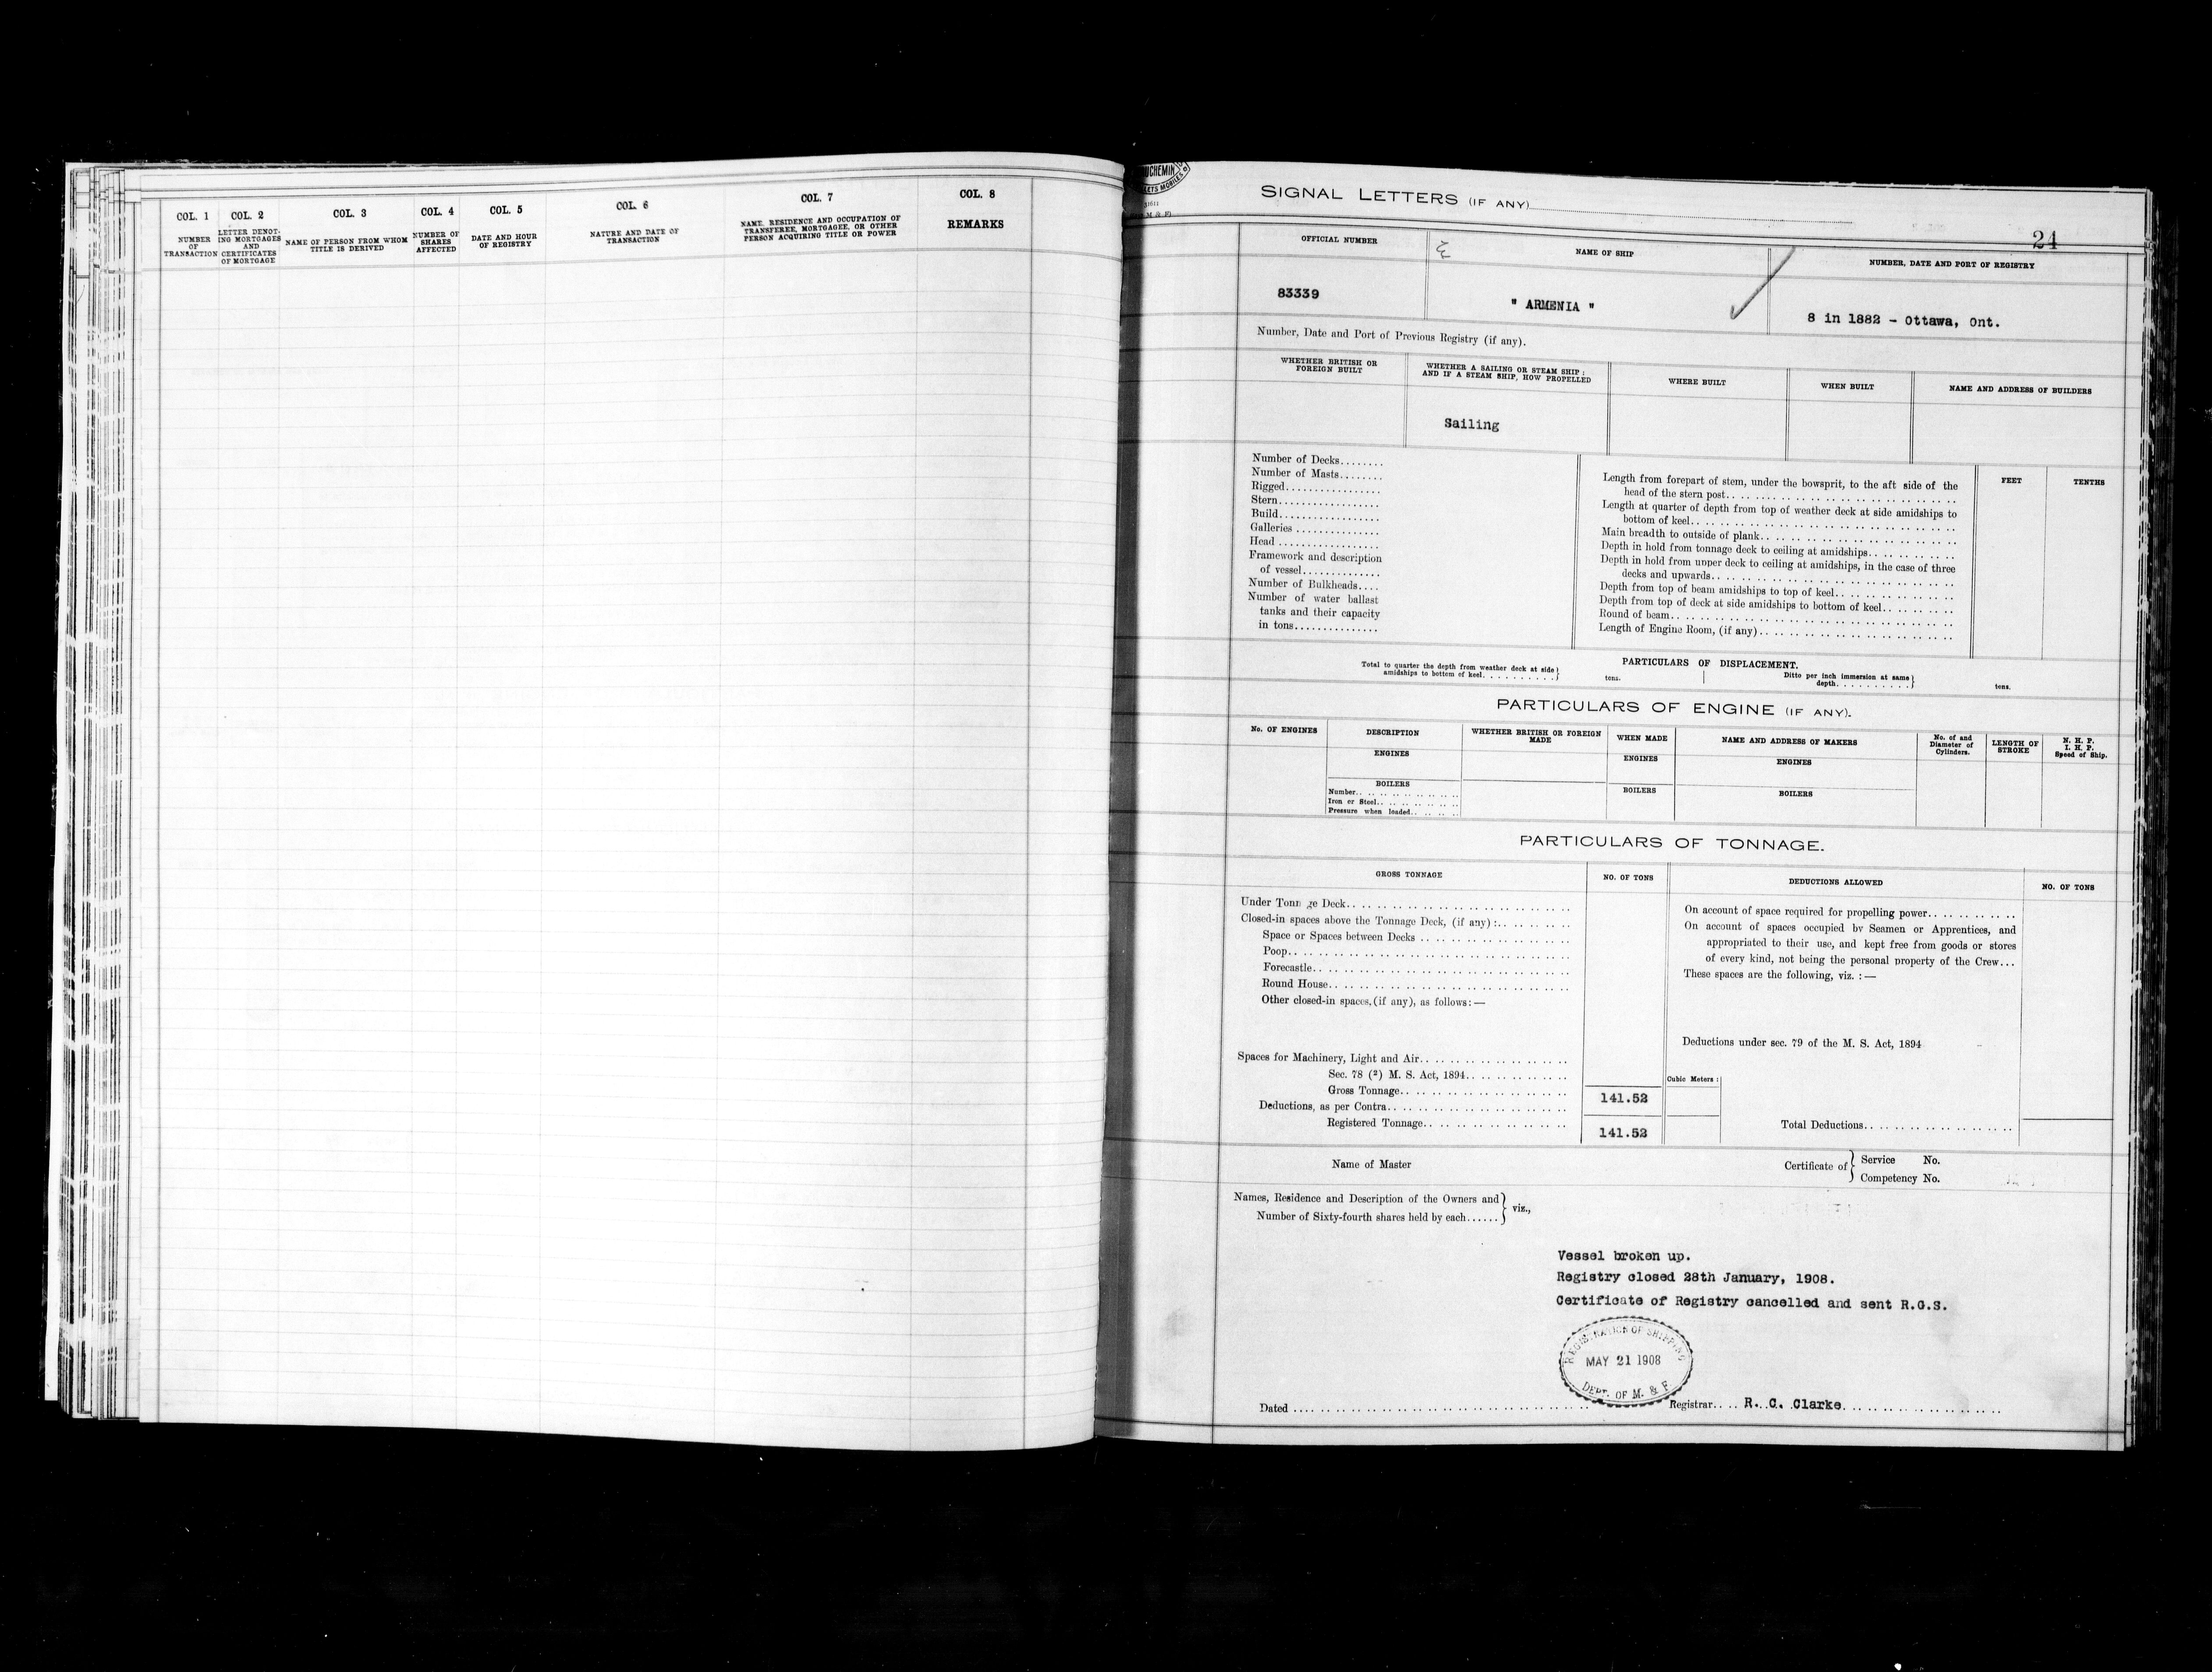 COL. 1
NUMBER
OF
TRANSACTION
COL. 2
LETTER DENOT-
ING MORTGAGES
AND
CERTIFICATES
OF MORTGAGE
COL. 3
NAME OF PERSON FROM WHOM
TITLE IS DERIVED
COL. 4
NUMBER OF
SHARES
AFFECTED
COL. 5
DATE AND HOUR
OF REGISTRY
COL. 6
NATURE AND DATE OF
TRANSACTION
COL. 7
NAME, RESIDENCE AND OCCUPATION OF
TRANSFEREE, MORTGAGEE, OR OTHER
PERSON ACQUIRING TITLE OR POWER
COL. 8
REMARKS
SIGNAL LETTERS (IF ANY)
24
OFFICIAL NUMBER
NAME OF SHIP
NUMBER, DATE AND PORT OF REGISTRY
83339
" ARMENIA "
8 in 1882 - Ottawa, Ont.
Number, Date and Port of Previous Registry (if any).
WHETHER BRITISH OR
FOREIGN BUILT
WHETHER A SAILING OR STEAM SHIP;
AND IF A STEAM SHIP, HOW PROPELLED
WHERE BUILT
WHEN BUILT
NAME AND ADDRESS OF BUILDERS
Sailing
Number of Decks........
Number of Masts........
Rigged.................
Stern..................
Build..................
Galleries ...............
Head ..................
Framework and description
of vessel..............
Number of Bulkheads....
Number of water ballast
tanks and their capacity
in tons...............
FEET
TENTHS
Length from forepart of stem, under the bowsprit, to the aft side of the
head of the stern post.. .. .. .. .. .. .. .. .. ..
Length at quarter of depth from top of weather deck at side amidships to
bottom of keel.. .. .. .. .. .. .. .. .. ..
Main breadth to outside of plank.. .. .. .. .. .. ..
Depth in hold from tonnage deck to ceiling at amidships.. .. .. ..
Depth in hold from upper deck to ceiling at amidships, in the case of three
decks and upwards.. .. .. .. .. .. .. .. ..
Depth from top of beam amidships to top of keel.. .. .. .. ..
Depth from top of deck at side amidships to bottom of keel.. .. ..
Round of beam.. .. .. .. .. .. .. .. .. ..
Length of Engine Room, (if any).. .. .. .. .. .. ..
PARTICULARS OF DISPLACEMENT.
Total to quarter the depth from weather deck at side
amidships to bottom of keel..........
tons.
Ditto per inch immersion at same
depth..........
tons.
PARTICULARS OF ENGINE (IF ANY).
No. OF ENGINES
DESCRIPTION
WHETHER BRITISH OR FOREIGN
MADE
WHEN MADE
NAME AND ADDRESS OF MAKERS
No. of and
Diameter of
Cylinders.
LENGTH OF
STROKE
N. H. P.
I. H. P.
Speed of Ship.
ENGINES
ENGINES
ENGINES
BOILERS
Number.. .. .. .. .. ..
Iron or Steel.. .. .. .. ..
Pressure when loaded.. .. ..
BOILERS
BOILERS
PARTICULARS OF TONNAGE.
GROSS TONNAGE
NO. OF TONS
DEDUCTIONS ALLOWED
NO. OF TONS
Under Tonn ge Deck.. .. .. .. .. .. .. ..
Closed-in spaces above the Tonnage Deck, (if any):.. .. .. ..
Space or Spaces between Decks .. .. .. .. .. ..
Poop.. .. .. .. .. .. .. .. .. ..
Forecastle.. .. .. .. .. .. .. .. ..
Round House.. .. .. .. .. .. .. .. ..
Other closed-in spaces, (if any), as follows:—
Spaces for Machinery, Light and Air.. .. .. .. .. ..
Sec. 78 (2) M. S. Act, 1894.. .. .. .. ..
Gross Tonnage.. .. .. .. .. .. ..
141.52
Deductions, as per Contra.. .. .. .. .. .. ..
Registered Tonnage.. .. .. .. .. ..
141.52
On account of space required for propelling power.. .. .. ..
On account of spaces occupied by Seamen or Apprentices, and
appropriated to their use, and kept free from goods or stores
of every kind, not being the personal property of the Crew...
These spaces are the following, viz. :—
Deductions under sec. 79 of the M. S. Act, 1894
Cubic Meters:
Total Deductions.. .. .. .. .. .. ..
Name of Master
Certificate of
Service No.
Competency No.
Names, Residence and Description of the Owners and
Number of Sixty-fourth shares held by each......
viz.,
Vessel broken up.
Registry closed 28th January, 1908.
Certificate of Registry cancelled and sent R.G.S.
REGISTRATION OF SHIPPING
MAY 21 1908
DEPT. OF M. & F.
Dated .. .. .. .. .. .. .. .. .. ..
Registrar.. .. R. C. Clarke.. .. .. .. .. ..